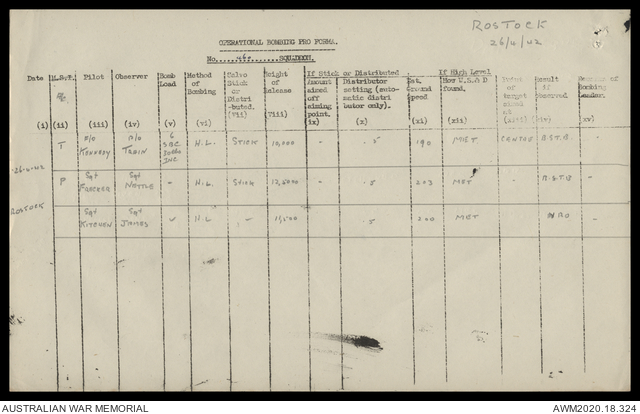 ROSTOCK
26/4/42
OPERATIONAL BOMBING PRO FORMA.
No. 455 SQUADRON.
Date M.&F. Pilot Observer Bomb Load Method of Bombing Salvo Stick or Distri-buted. Height of Release If Stick or Distributed Amount aimed off aiming point. Distributor setting (auto-matic distri butor only). Ground Speed. If High Level How W.S. & D found. target aimed at Result if observed. of Bombing Leader.
(i) (ii) (iii) (iv) (v) (vi) (vii) (viii) ix) (x) (xi) (xii) (xiii) (xiv) xv)
T P/O KENNEDY P/O TRAIN 6 SBC INC H.L. STICK 10,000 - .5 190 MET CENTRE B.S.T.B. -
26.4.42
P Sgt Sgt NETTLE - H.L. STICK 12,500 - .5 203 MET B.S.T.B -
ROSTOCK
Sgt KITCHEN Sgt JAMES H.L - - .5 200 MET NRO -
AUSTRALIAN WAR MEMORIAL
AWM2020.18.324